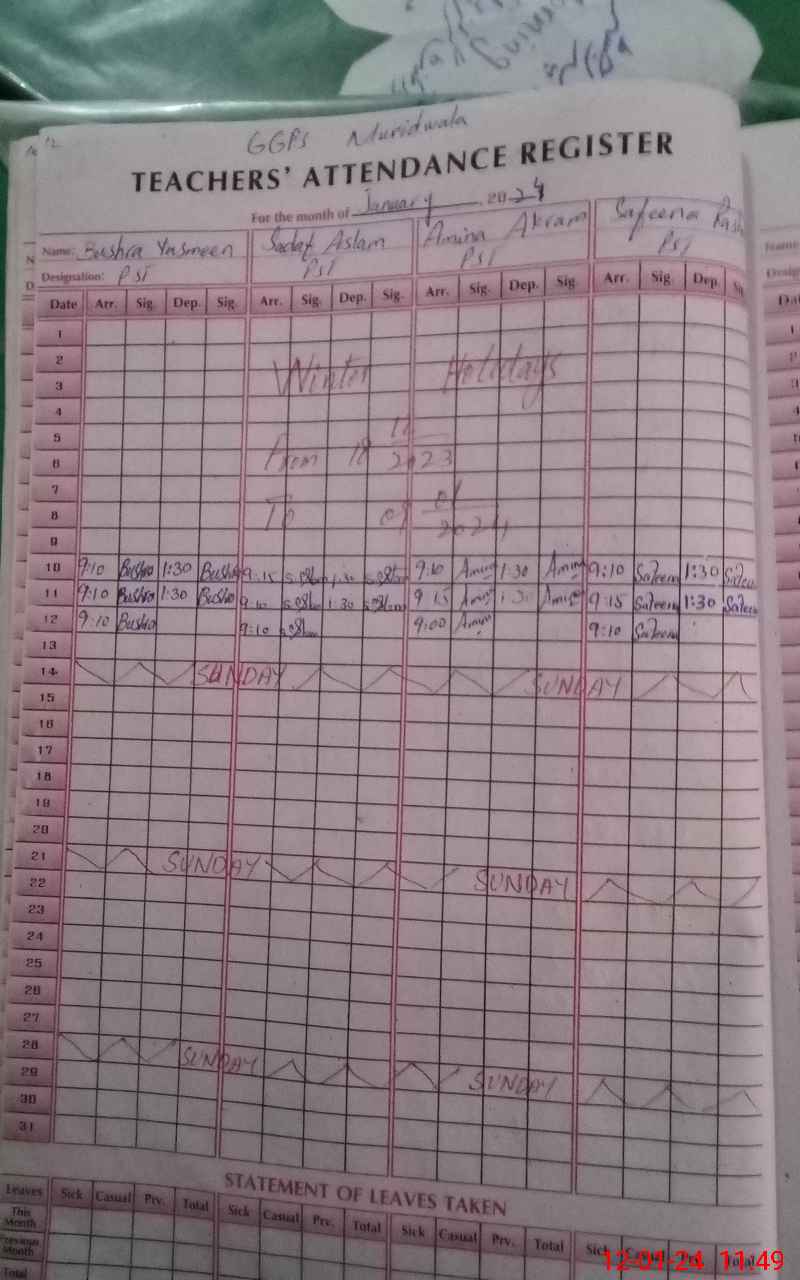 GGPS Muridwala
TEACHERS' ATTENDANCE REGISTER
For the month of January 2024
Name: Bushra Yasmeen Sadaf Aslam Amina Akram Safeena
Designation: PST PST PST PST
Date Arr. Sig. Dep. Sig. Arr. Sig. Dep. Sig. Arr. Sig. Dep. Sig. Arr. Sig. Dep.
1
2
3 Winter Holidays
4
5 12
6 From 18 2023
7
8 To 01
9 2024
10 9:10 Bushra 1:30 Bushra 9:15 1:30 9:10 Amina 1:30 Amina 9:10 Safeena 1:30
11 9:10 Bushra 1:30 Bushra 9:10 1:30 9:15 Amina 1:30 Amina 9:15 Safeena 1:30
12 9:10 Bushra 9:10 9:00 Amina 9:10 Safeena
13
14 SUNDAY SUNDAY
15
16
17
18
19
20
21 SUNDAY
22 SUNDAY
23
24
25
26
27
28 SUNDAY
29 SUNDAY
30
31
STATEMENT OF LEAVES TAKEN
Leaves Sick Casual Prv. Total Sick Casual Prv. Total Sick Casual Prv. Total Sick Casual Prv. Total
This Month
Previous Month
Total
12-01-24 11:49